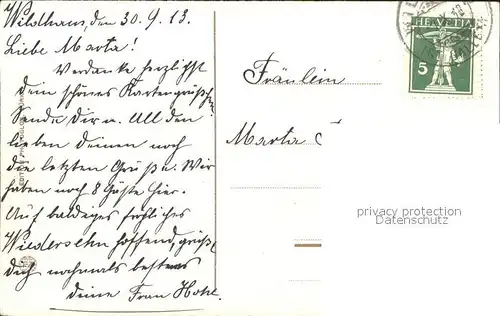 Wildhaus, den 30. 9. 13.
Liebe Marta!
Verdanke herzlichst
dein schönes Kartengrüßchen
Sende Dir u. All den
lieben Deinen noch
die letzten Grüße. Wir
haben noch 8 Gäste hier.
Auf baldiges fröhliches
Wiedersehn hoffend, grüßt
Dich nochmals bestens
deine Frau
Fräulein
Marta
HELVETIA
5
privacy protection
Datenschutz